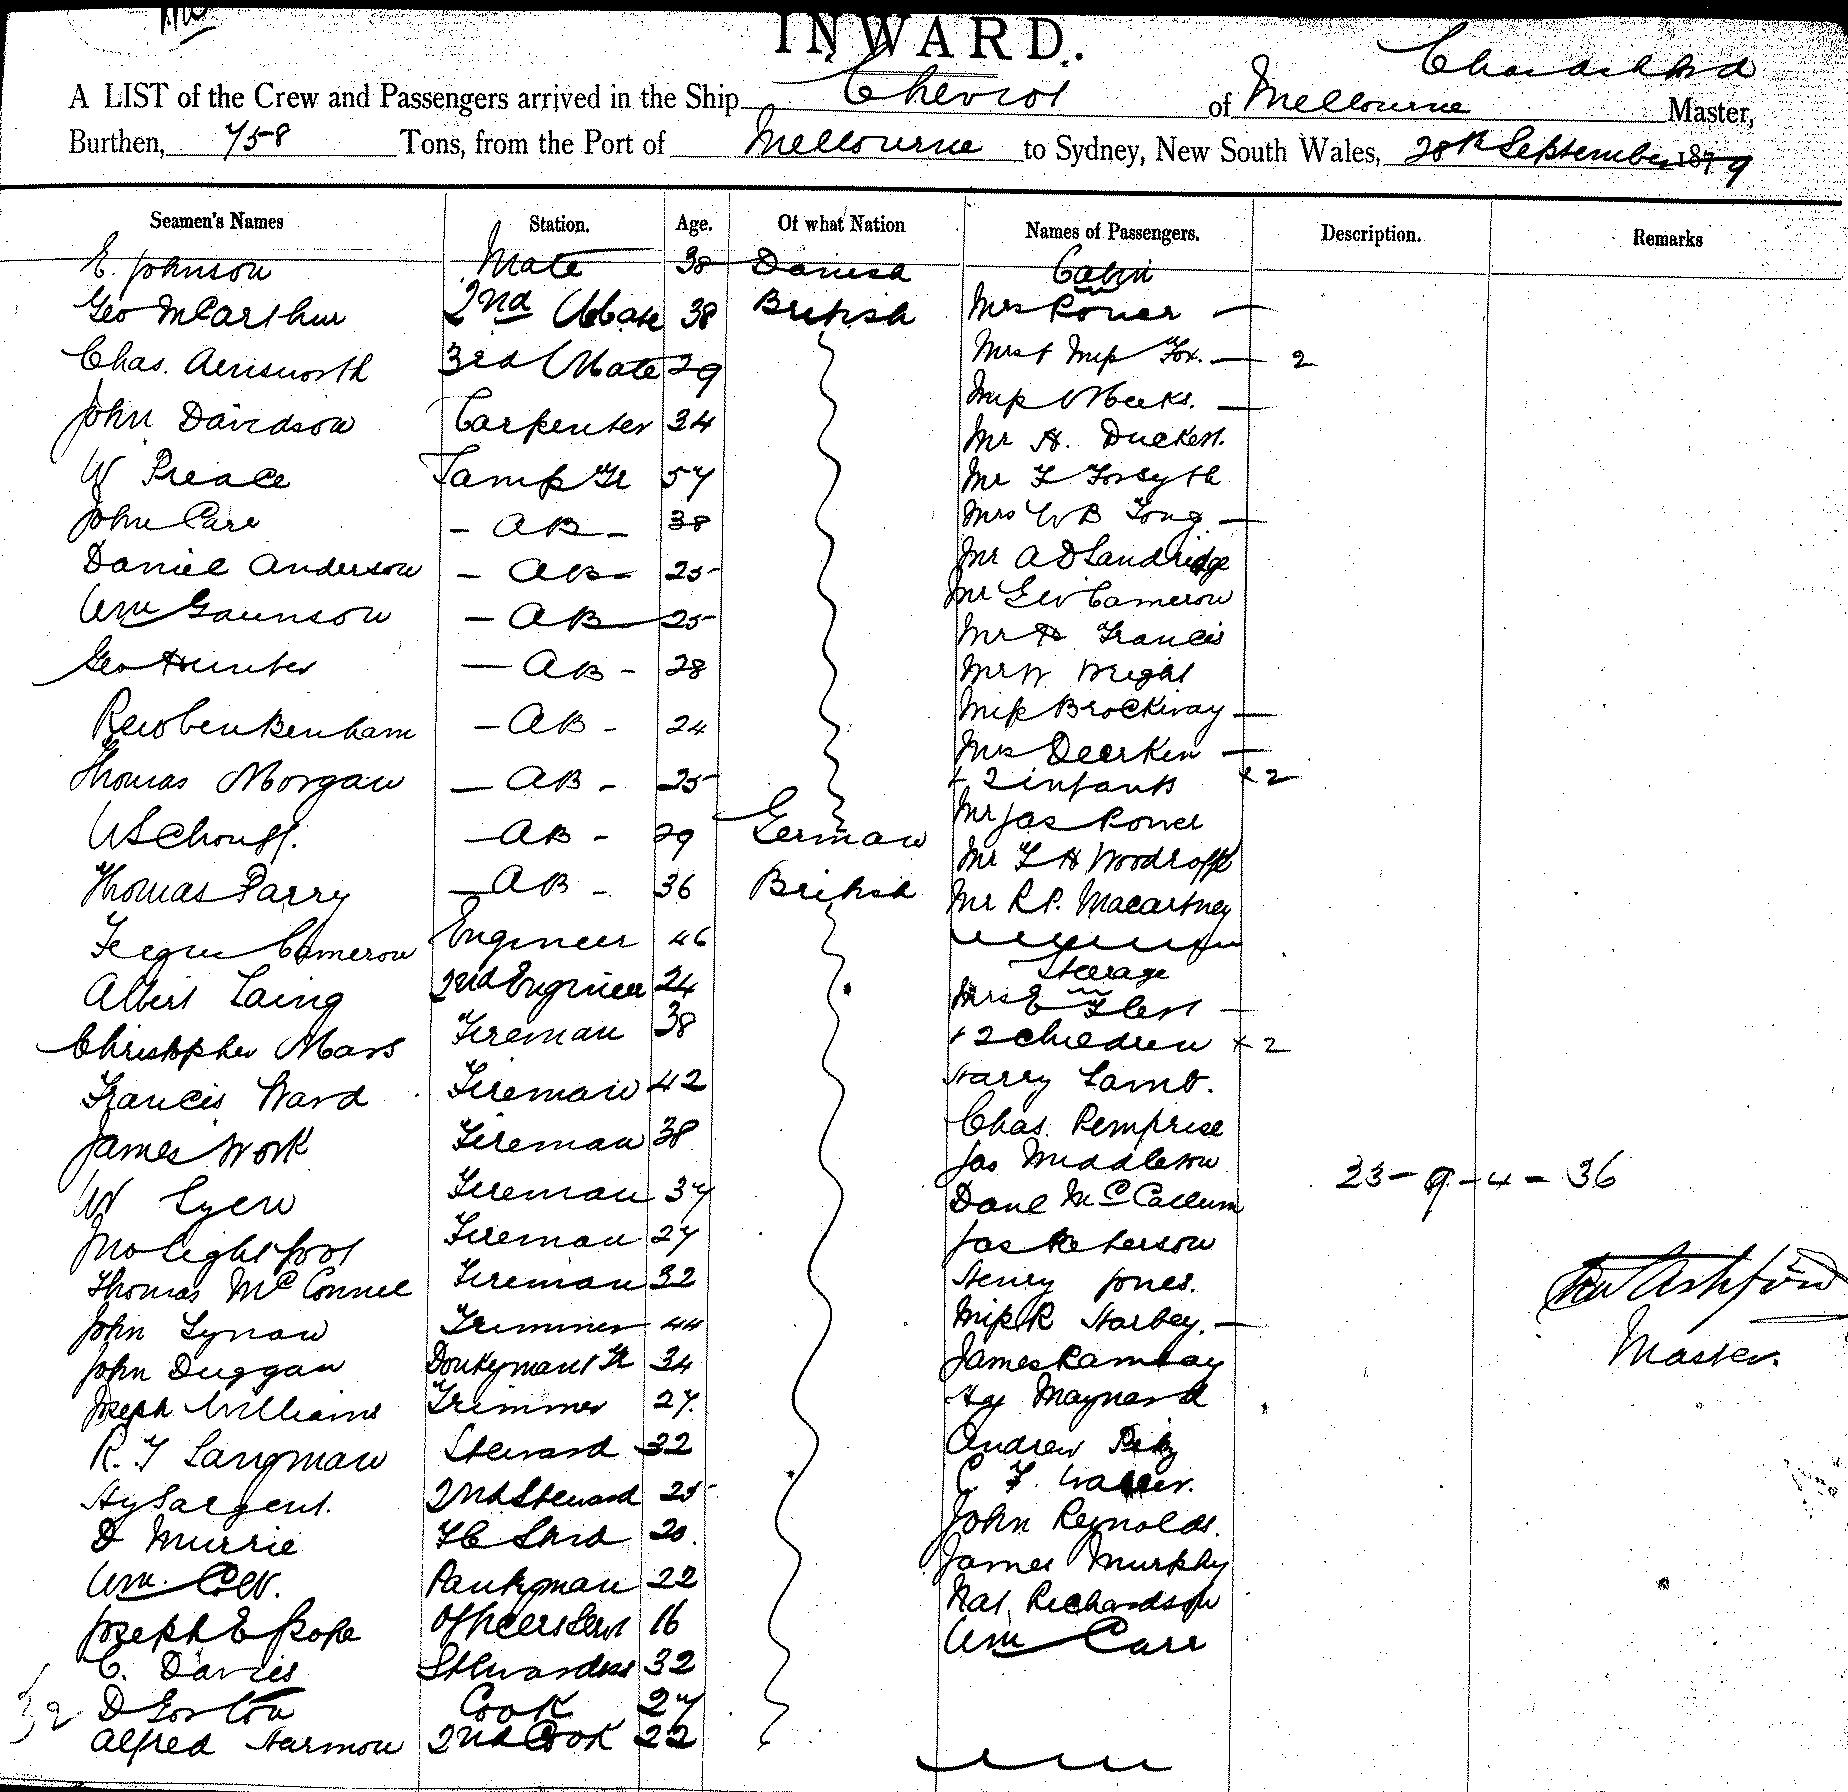 INWARD.
Chas Ashford
A LIST of the Crew and Passengers arrived in the Ship Cheviot of Melbourne Master,
Burthen, 758 Tons, from the Port of Melbourne to Sydney, New South Wales, 20th September 1879
Seamen's Names Station. Age. Of what Nation Names of Passengers. Description. Remarks
E. Johnson Mate 38 Danish Cabin
Geo McCarthur 2nd Mate 38 British Mrs Power —
Chas. Ainsworth 3rd Mate 29 Mrs + Miss Fox. — 2
John Davidson Carpenter 34 Miss Meeks. —
Mr H. Duckett.
W Preace Lamp Tr 57 Mr F Forsyth
John Carr - AB - 38 Mrs W B Tong —
Daniel Anderson - AB - 25 Mr A D Landridge
Wm Gaunson - AB - 25 Mr Geo Cameron
Mr H Francis
Geo Hunter - AB - 28 Mr W Wright
Reuben Benham - AB - 24 Miss Brockway —
Mrs Deerken —
Thomas Morgan - AB - 25 + 2 infants x 2
Mr Jas Power
W Schouff. - AB - 29 German
Mr F H Woodroffe
Thomas Parry - AB - 36 British Mr R P. Macartney
Cameron Engineer 46
Steerage
Albert Laing 2nd Engineer 24 Mrs E —
Christopher Mars Fireman 38 + 2 children x 2
Francis Ward Fireman 42 Harry Lamb.
James Work Fireman 38 Chas. Pemprise
Jas Middleton 23 - 9 - 4 - 36
W Lyen Fireman 37 Danl McCallum
Jno Lightfoot Fireman 27 Jas Peterson
Thomas McConnel Fireman 32 Henry Jones.
Chas Ashford
John Lynan Trimmer 44 Miss R Harbey. —
Master.
John Duggan Donkeyman & Tr 34 James Ramsay
Joseph Williams Trimmer 27. Hy Maynard
R. F Langman Steward 32 Andrew
Hy Sargent. 2nd Steward 25 C F. Walker.
D Murrie F C Stwd 20. John Reynolds.
Wm. Cole. Pantryman 22 James Murphy
Joseph E Pope Officers Servt 16 Nat. Richardson
Wm Carr
C. Davies Stewardess 32
32 D Gorton Cook 27
Alfred Harmon 2nd Cook 22